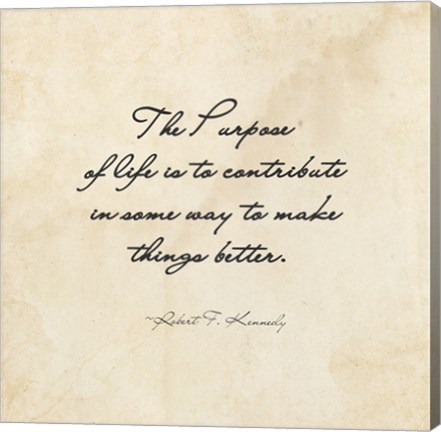 The Purpose
of life is to contribute
in some way to make
things better.
~Robert F. Kennedy